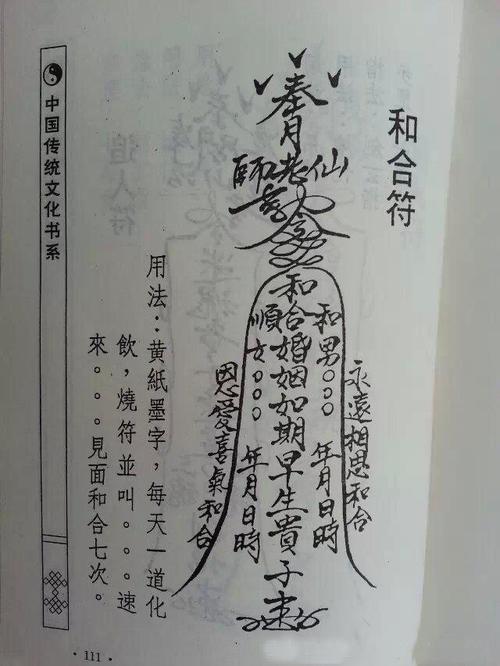 和合符
奉
月
師老仙
和合婚姻如期早生貴子
和男○○○ 年月日時
順女○○○ 年月日時
永遠相思和合
恩愛喜氣和合
用法：黄紙墨字，每天一道化
飲，燒符並叫。。。速
來。。。見面和合七次。
中国传统文化书系
111